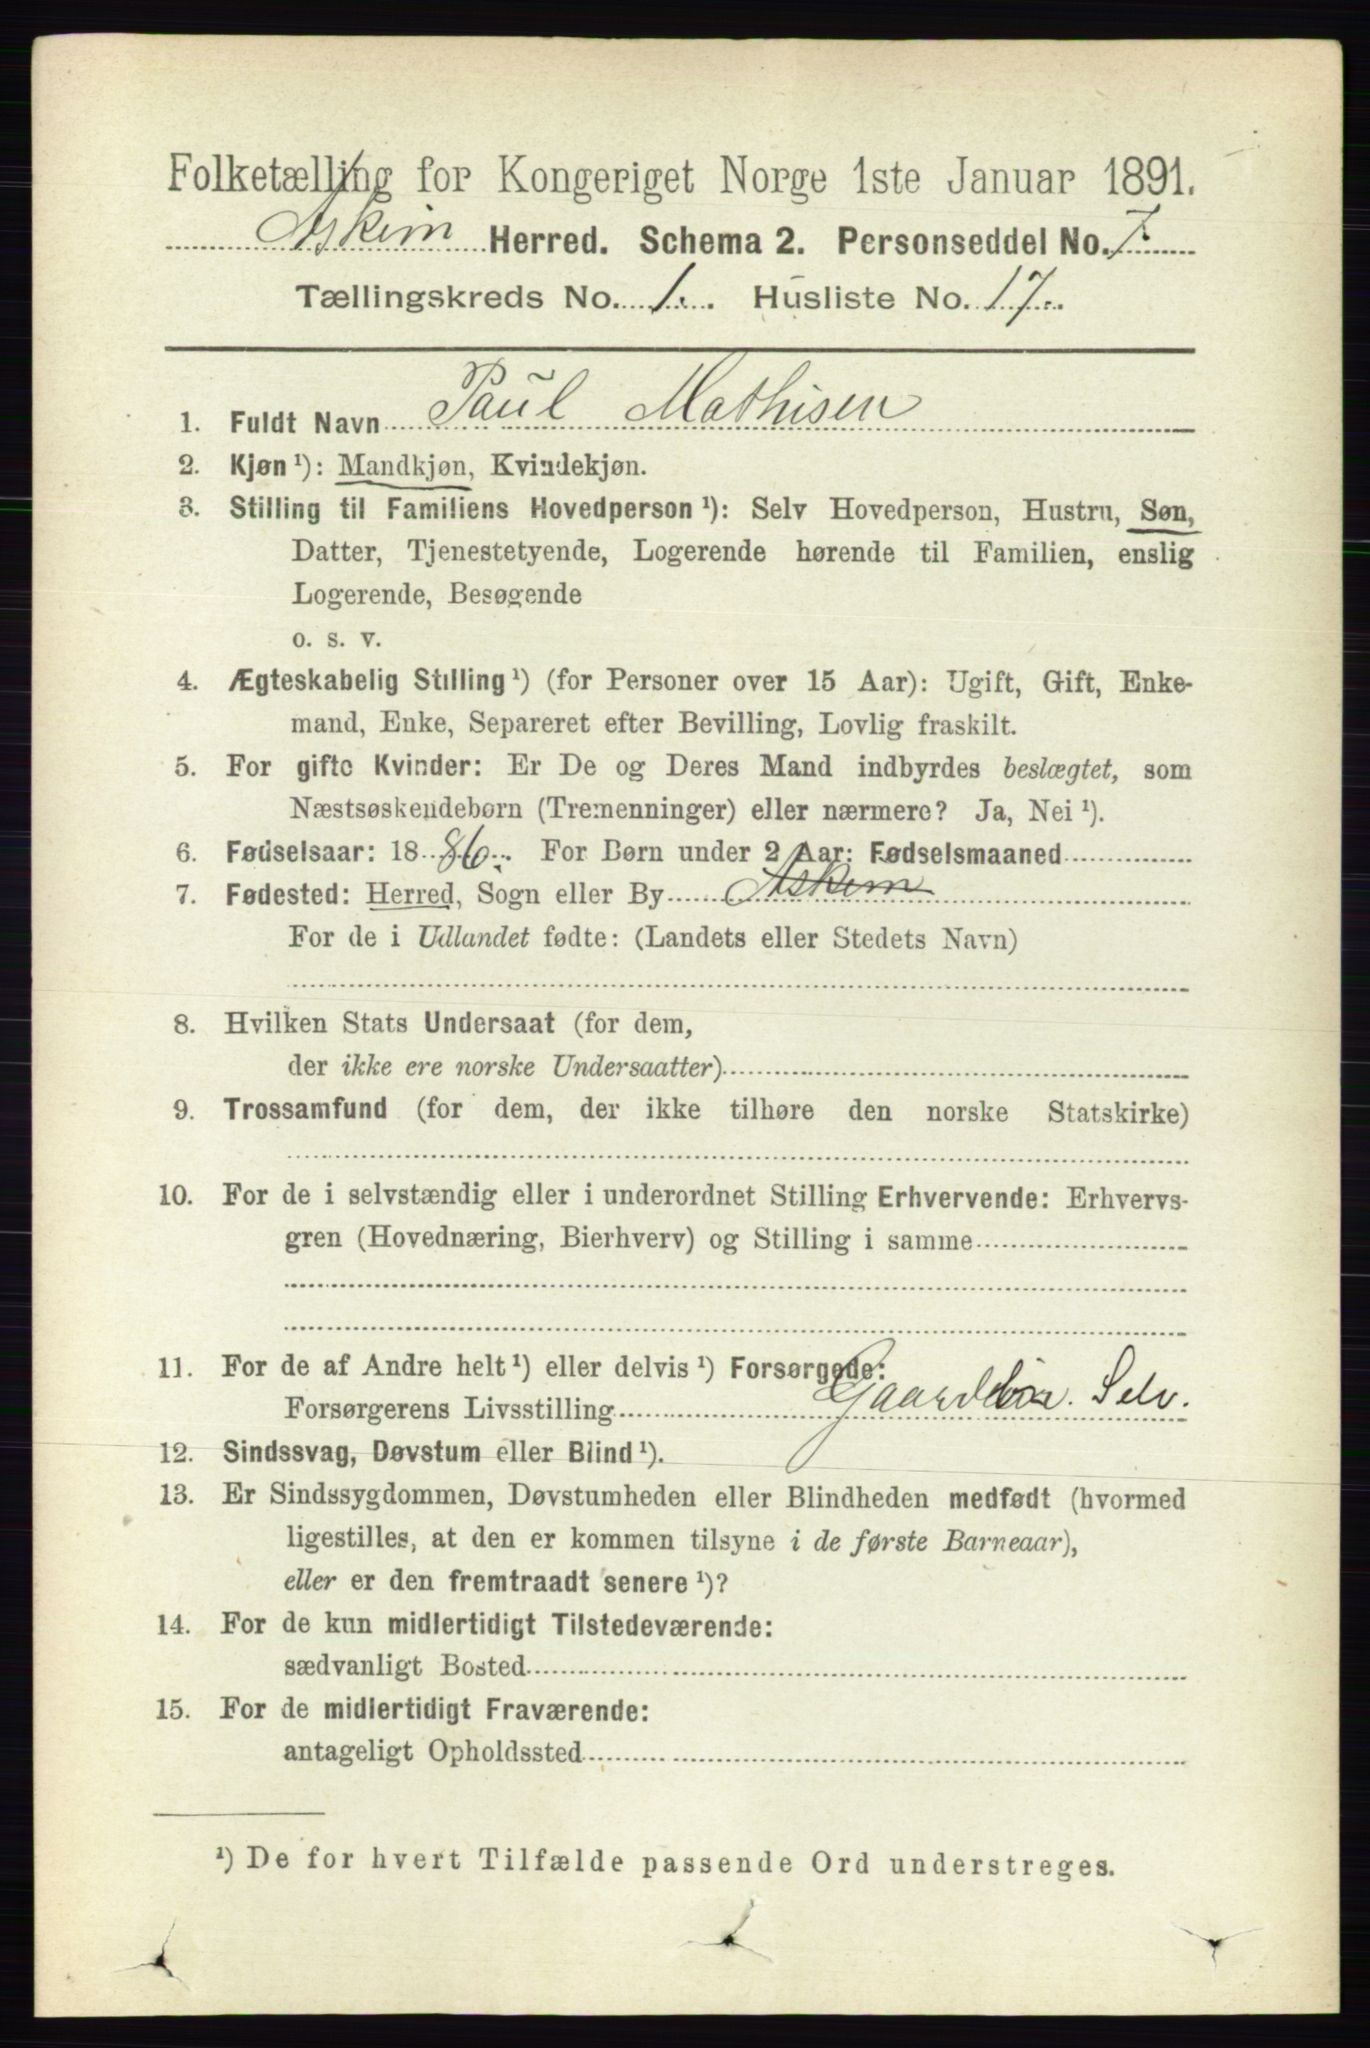 Folketælling for Kongeriget Norge 1ste Januar 1891.
Askim Herred. Schema 2. Personseddel No. 7.
Tællingskreds No. 1. Husliste No. 17.
1. Fuldt Navn Paul Mathisen
2. Kjøn ¹): Mandkjøn, Kvindekjøn.
3. Stilling til Familiens Hovedperson ¹): Selv Hovedperson, Hustru, Søn,
Datter, Tjenestetyende, Logerende hørende til Familien, enslig
Logerende, Besøgende
o. s. v.
4. Ægteskabelig Stilling ¹) (for Personer over 15 Aar): Ugift, Gift, Enke-
mand, Enke, Separeret efter Bevilling, Lovlig fraskilt.
5. For gifte Kvinder: Er De og Deres Mand indbyrdes beslægtet, som
Næstsøskendebørn (Tremenninger) eller nærmere? Ja, Nei ¹).
6. Fødselsaar: 1886. For Børn under 2 Aar: Fødselsmaaned
7. Fødested: Herred, Sogn eller By Askim
For de i Udlandet fødte: (Landets eller Stedets Navn)
8. Hvilken Stats Undersaat (for dem,
der ikke ere norske Undersaatter)
9. Trossamfund (for dem, der ikke tilhøre den norske Statskirke)
10. For de i selvstændig eller i underordnet Stilling Erhvervende: Erhvervs-
gren (Hovednæring, Bierhverv) og Stilling i samme
11. For de af Andre helt ¹) eller delvis ¹) Forsørgede:
Forsørgerens Livsstilling Selv.
12. Sindssvag, Døvstum eller Blind ¹).
13. Er Sindssygdommen, Døvstumheden eller Blindheden medfødt (hvormed
ligestilles, at den er kommen tilsyne i de første Barneaar),
eller er den fremtraadt senere ¹)?
14. For de kun midlertidigt Tilstedeværende:
sædvanligt Bosted
15. For de midlertidigt Fraværende:
antageligt Opholdssted
¹) De for hvert Tilfælde passende Ord understreges.